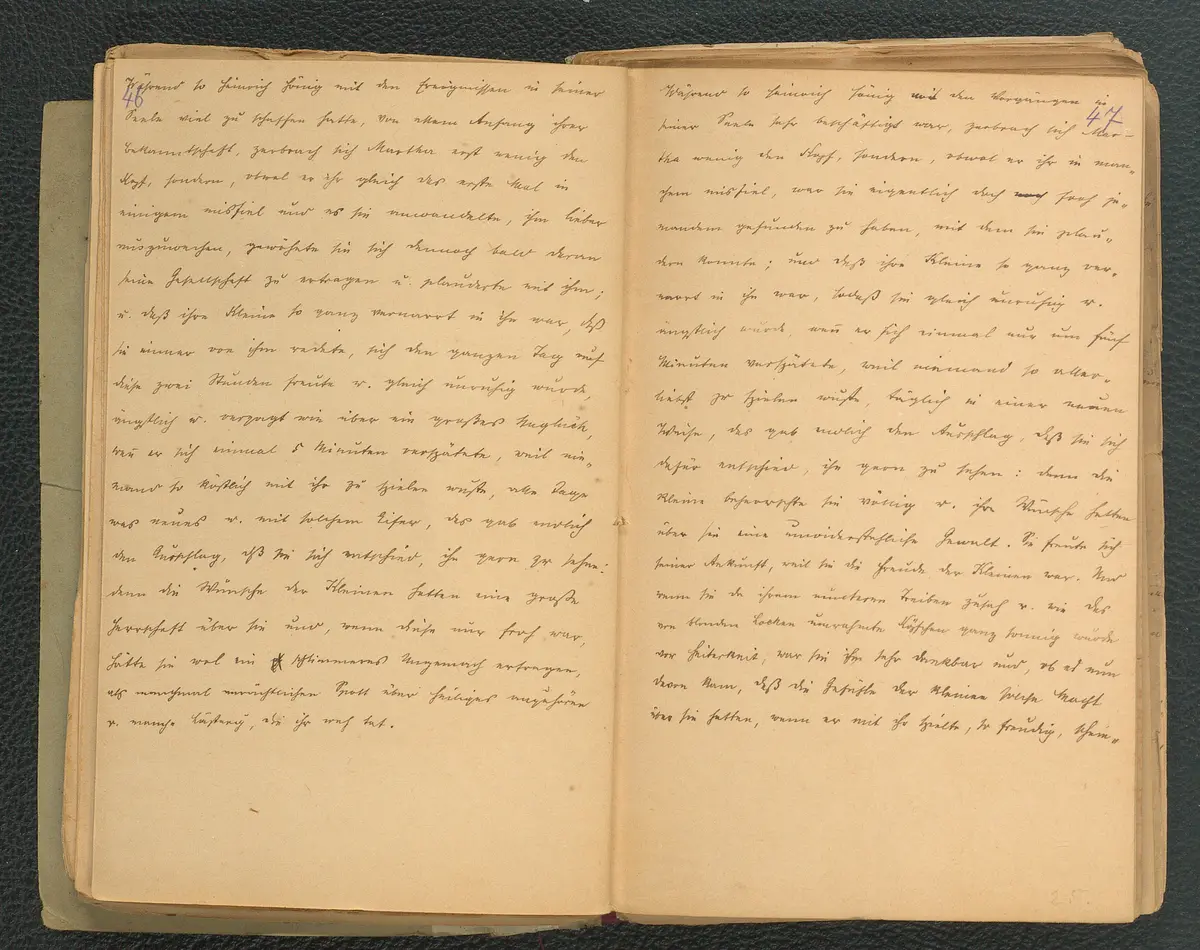 46
Während so Heinrich König mit den Ereignissen in seiner
Seele viel zu schaffen hatte, von allem Anfang ihrer
Bekanntschaft, zerbrach sich Martha erst wenig den
Kopf, sondern, obwol er ihr gleich das erste Mal in
einigem missfiel und es sie anwandelte, ihm lieber
auszuweichen, gewöhnte sie sich dennoch bald daran
seine Gesellschaft zu ertragen u. plauderte mit ihm;
u. daß ihre Kleine so ganz vernarrt in ihn war, daß
sie immer von ihm redete, sich den ganzen Tag auf
diese zwei Stunden freute u. gleich unruhig wurde,
ängstlich u. verzagt wie über ein großes Unglück,
wenn er sich einmal 5 Minuten verspätete, weil nie-
mand so köstlich mit ihr zu spielen wußte, alle Tage
was neues u. mit solchem Eifer, das gab endlich
den Ausschlag, daß sie sich entschied, ihn gern zu sehen:
denn die Wünsche der Kleinen hatten eine große
Herrschaft über sie und, wenn diese nur froh war,
hätte sie wol ein schlimmeres Ungemach ertragen,
als manchmal verächtlichen Spott über Heiliges anzuhören
u. manche Lästerung, die ihr weh tat.
47
Während so Heinrich König mit den Vorgängen in
seiner Seele sehr beschäftigt war, zerbrach sich Mar-
tha wenig den Kopf, sondern, obwol er ihr in man-
chem missfiel, war sie eigentlich doch froh je-
manden gefunden zu haben, mit dem sie plau-
dern konnte; und daß ihre Kleine so ganz ver-
narrt in ihn war, sodaß sie gleich unruhig u.
ängstlich wurde, wenn er sich einmal nur um fünf
Minuten verspätete, weil niemand so aller-
liebst zu spielen wußte, täglich in einer neuen
Weise, das gab endlich den Ausschlag, daß sie sich
dafür entschied, ihn gern zu sehen: denn die
Kleine beherrschte sie völlig u. ihre Wünsche hatten
über sie eine unwiderstehliche Gewalt. Sie freute sich
seiner Ankunft, weil sie die Freude der Kleinen war. Und
wenn sie da ihrem munteren Treiben zusah u. wie das
von blonden Locken umrahmte Köpfchen ganz sonnig wurde
vor Heiterkeit, war sie ihm sehr dankbar und, ob es nun
davon kam, daß die Gefühle der Kleinen solche Macht
über sie hatten, wenn er mit ihr spielte, so freudig, schein-